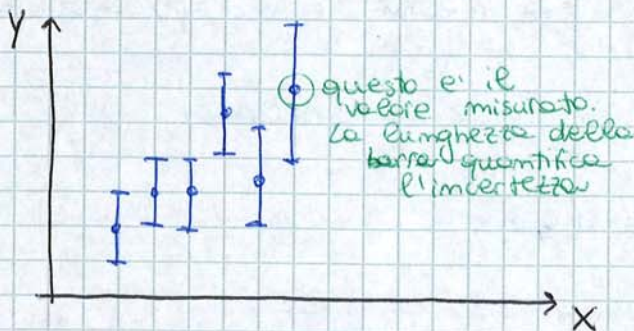 Y
questo e' il
valore misurato.
La lunghezza della
barra quantifica
l'incertezza
X